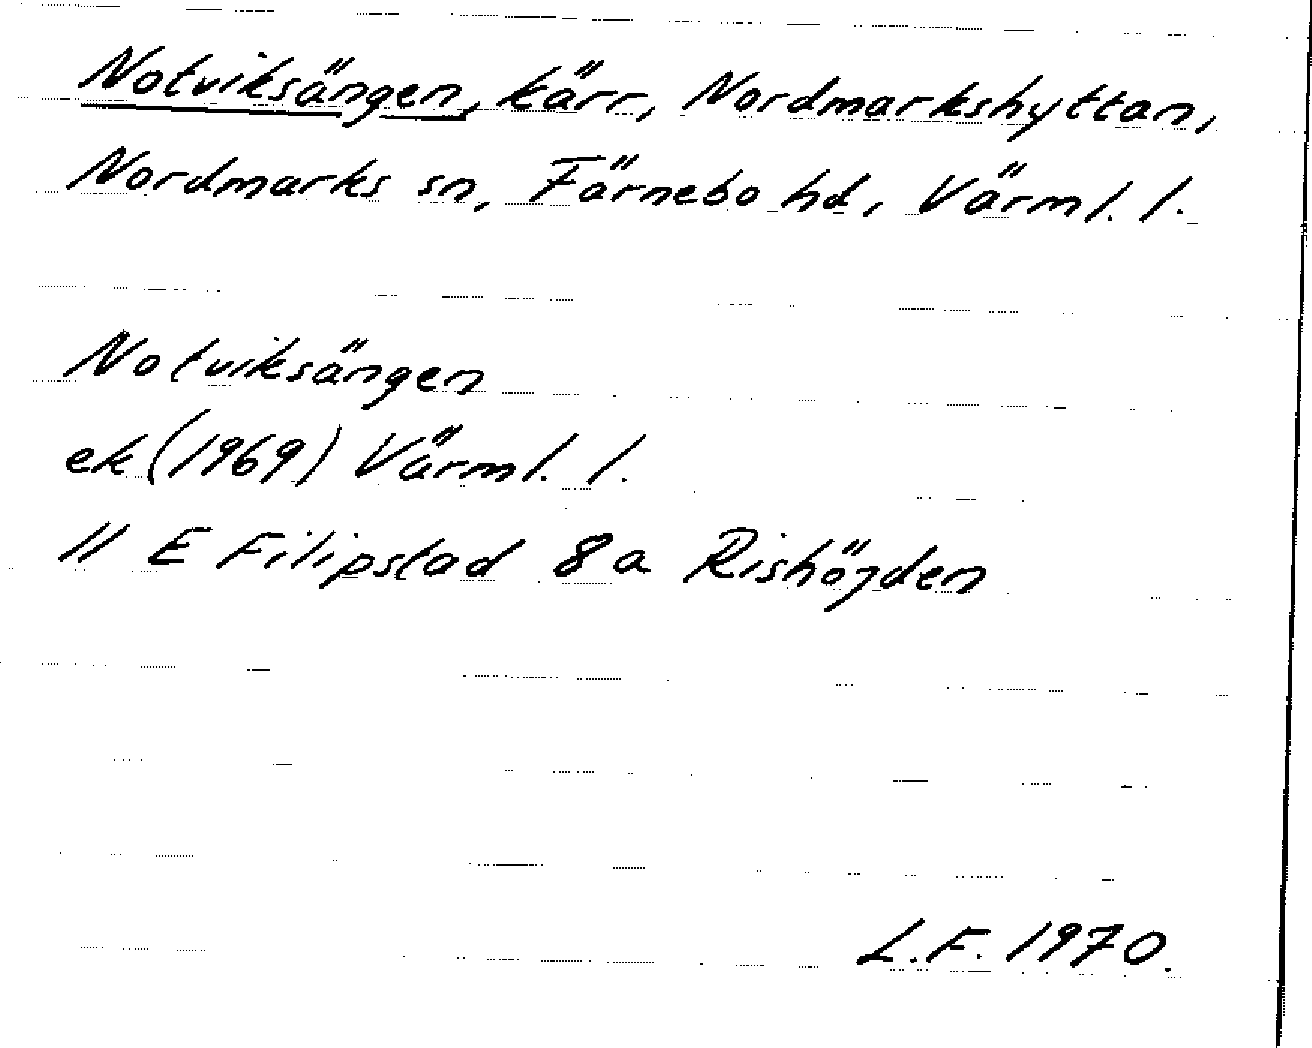 Notviksängen, kärr, Nordmarkshyttan,
Nordmarks sn, Färnebo hd, Värml. l.
Notviksängen
ek (1969) Värml. l.
11 E Filipstad 8 a Rishöjden
L.F. 1970.